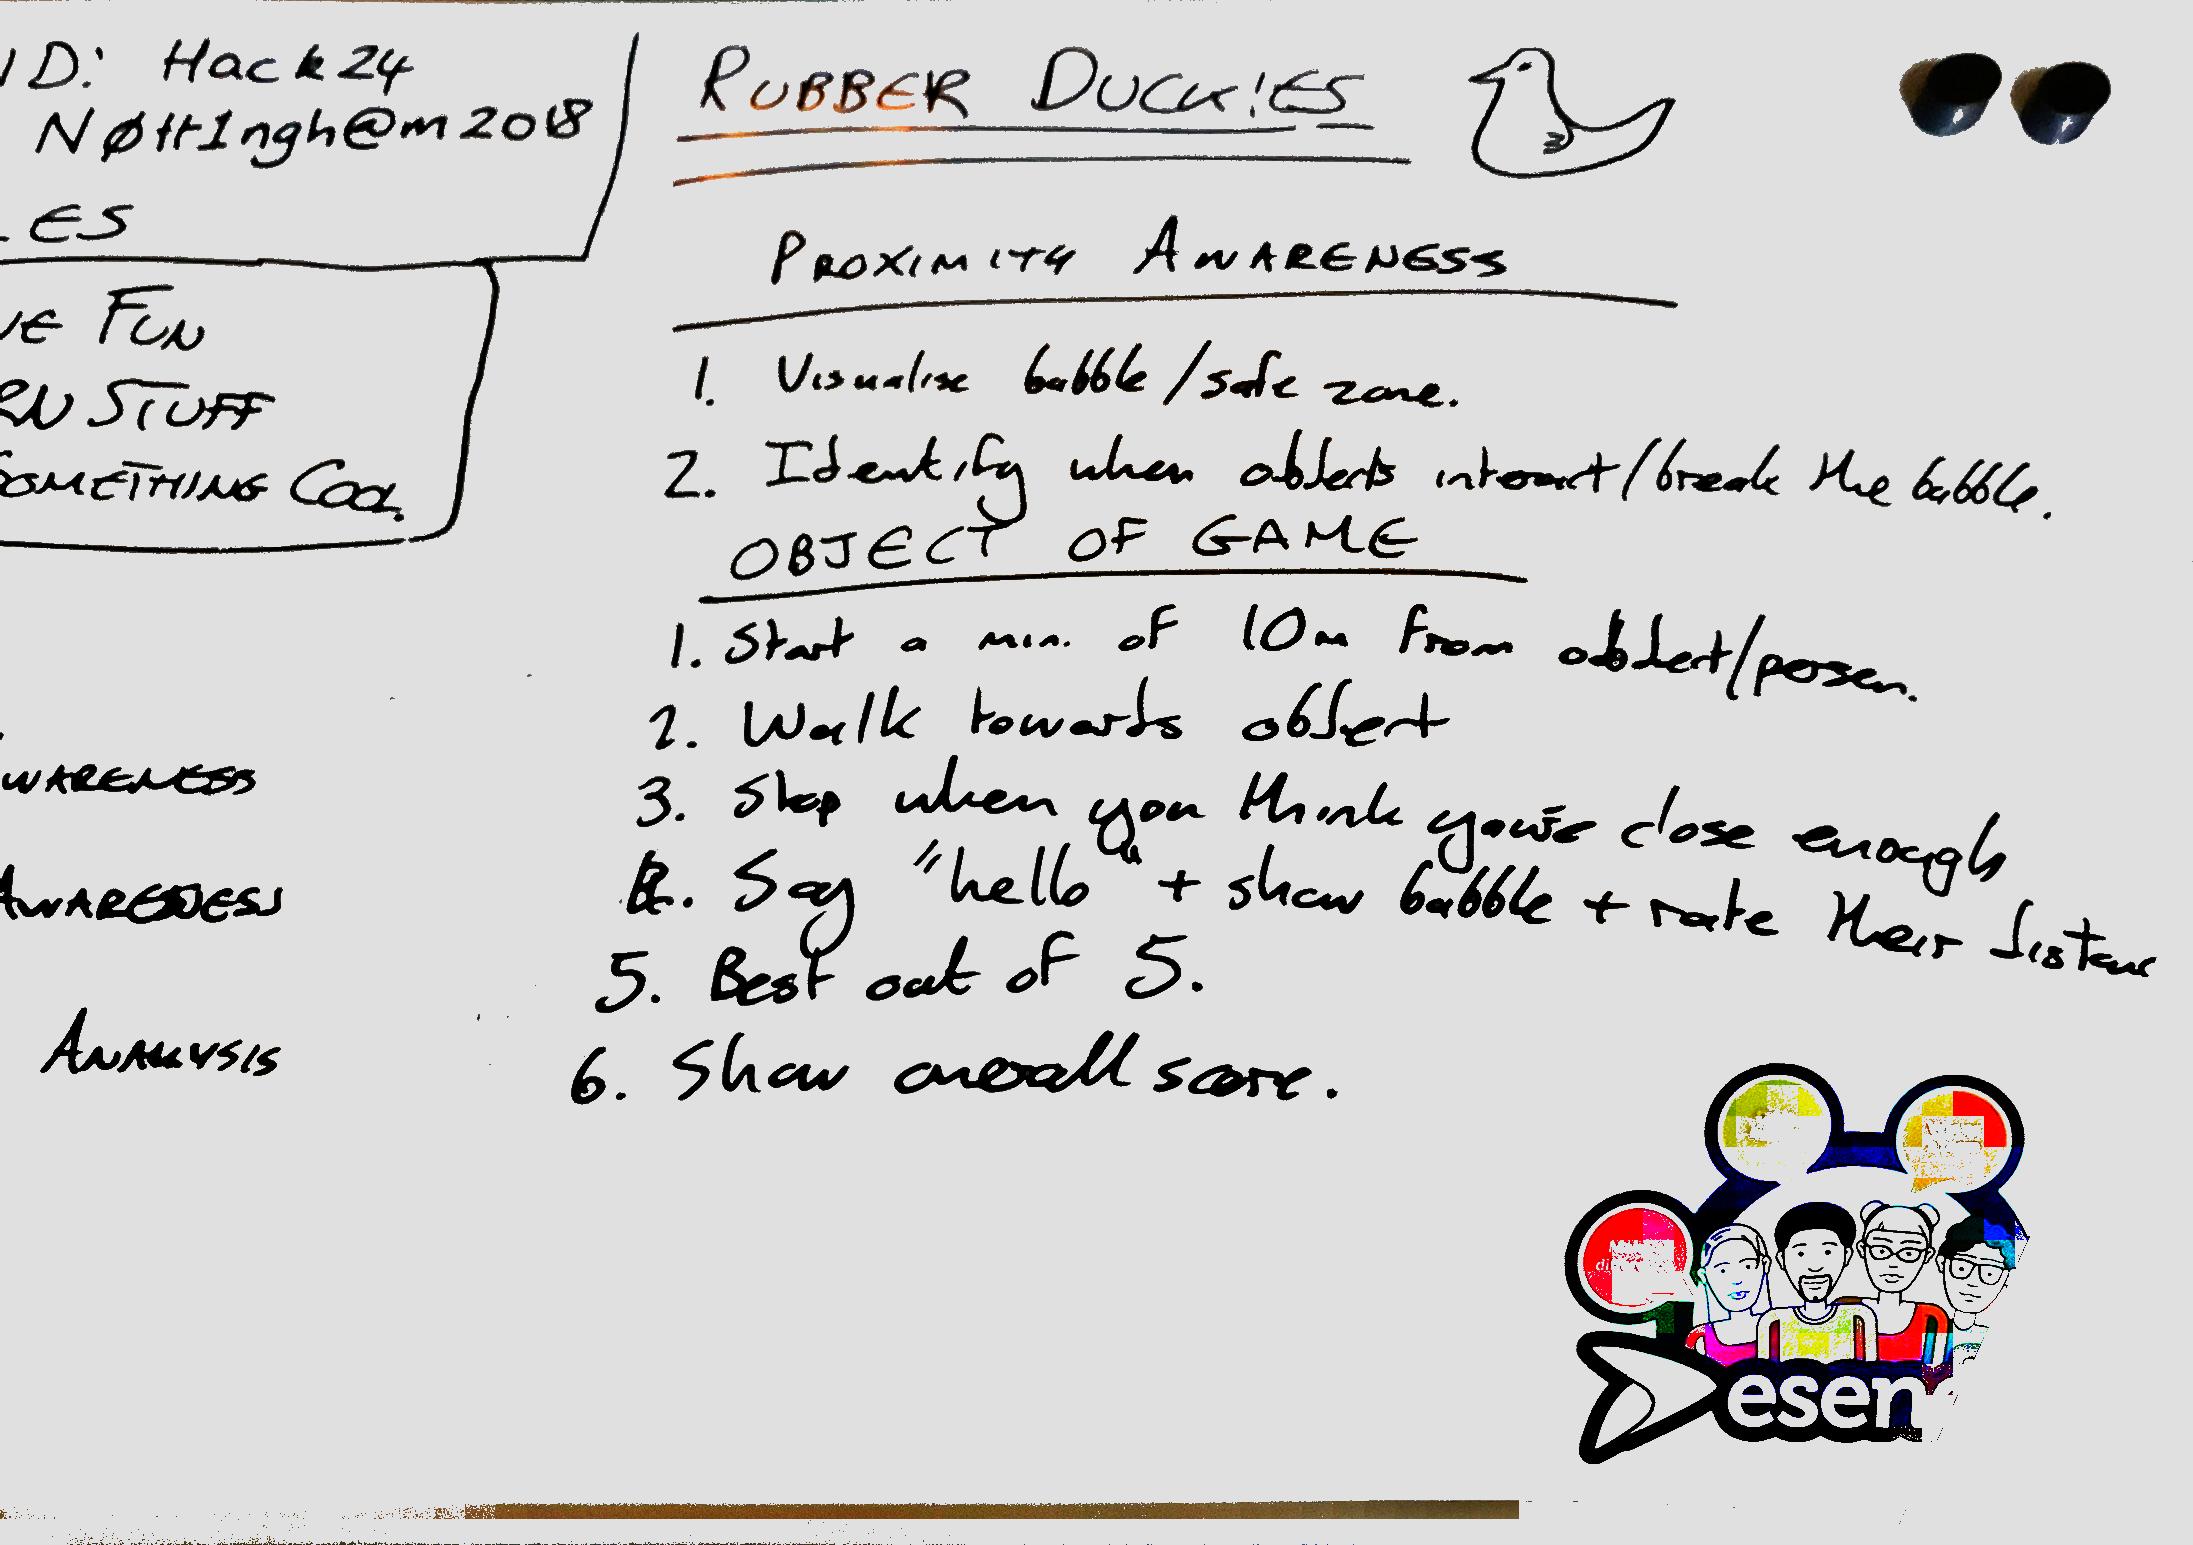 ID: Hack24
Nøtt1ngh@m2018
LES
VE FUN
RN STUFF
SOMETHING COOL.
WARENESS
AWARENESS
ANALYSIS
RUBBER DUCK!ES
PROXIMITY AWARENESS
1. Visualise bubble/safe zone.
2. Identify when objects interact/break the bubble.
OBJECT OF GAME
1. Start a min. of 10m from object/person.
2. Walk towards object
3. Stop when you think you're close enough
4. Say "hello" + show bubble + rate their distance
5. Best out of 5.
6. Show overall score.
esen